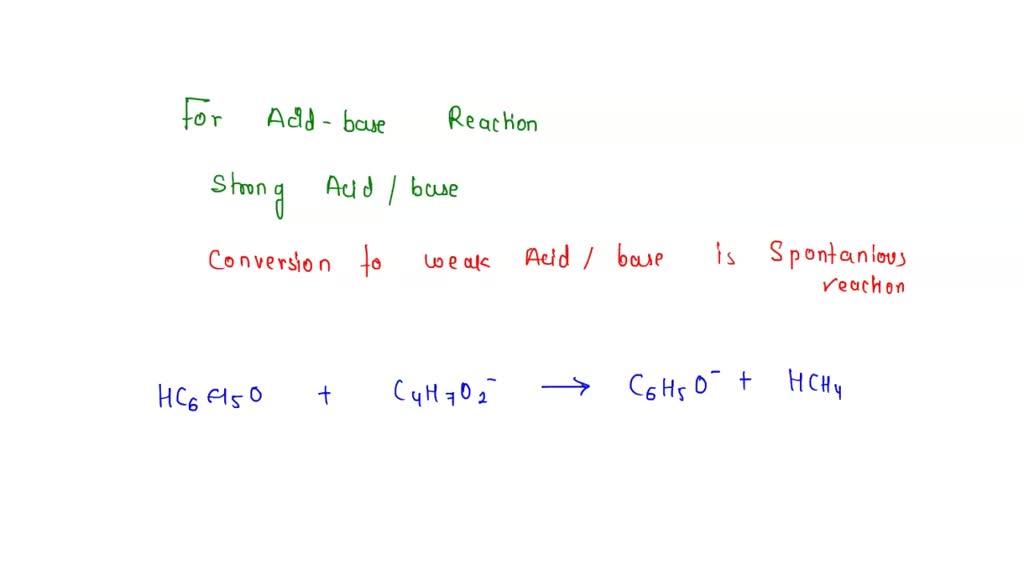 For Acid-base Reaction
Strong Acid / base
Conversion to weak Acid / base is Spontanious
reaction
HC6H5O + C4H7O2⁻ → C6H5O⁻ + HCH4